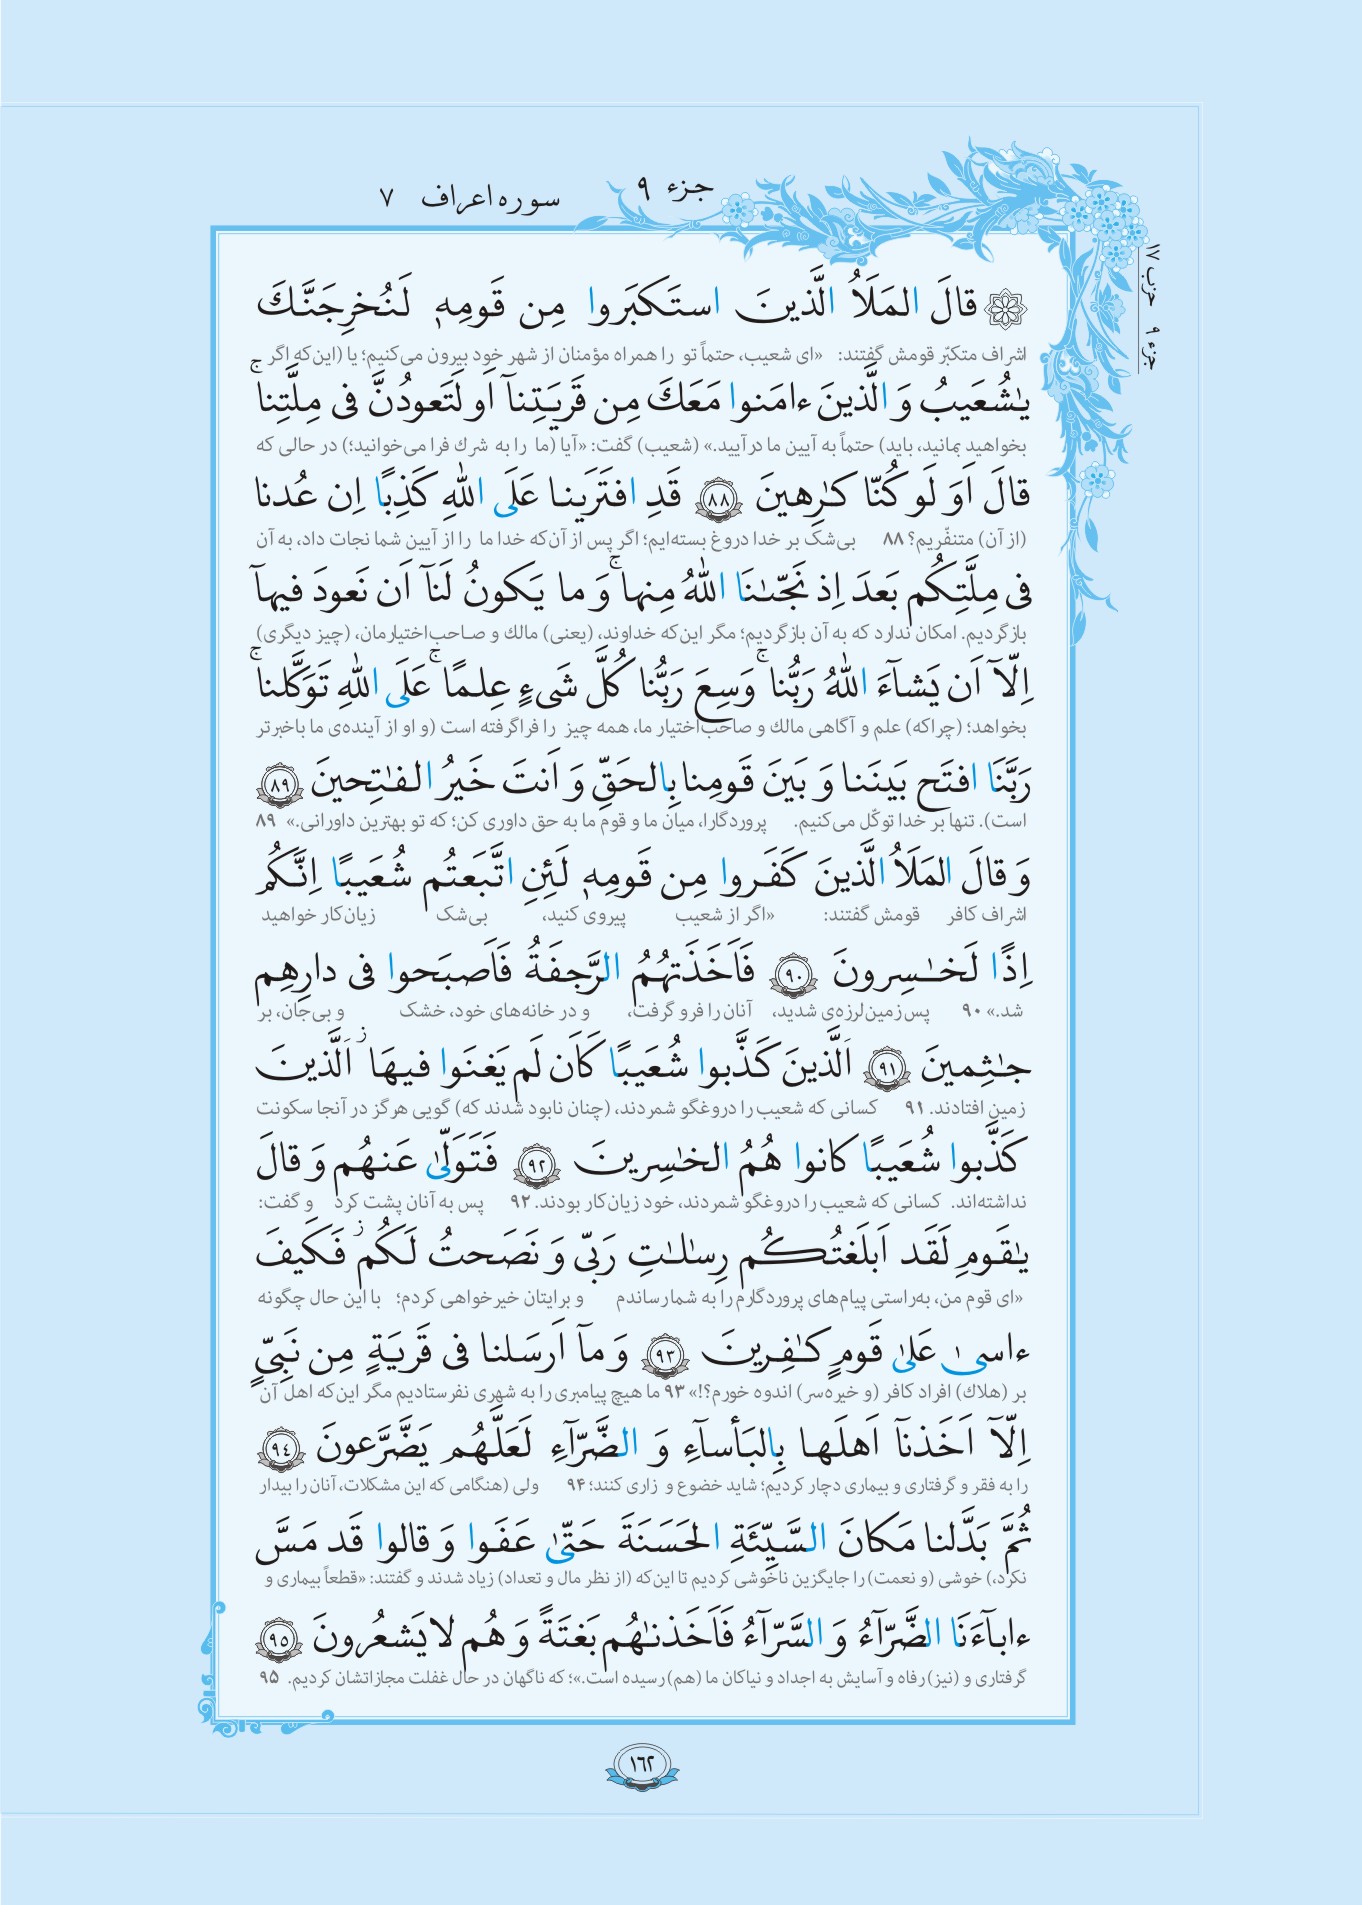 جزء ۹
سوره اعراف ۷
حزب ۱۷
جزء ۹
قالَ المَلَاُ الَّذينَ استَكبَروا مِن قَومِهٖ لَنُخرِجَنَّكَ
اشراف متکبّر قومش گفتند: «ای شعیب، حتماً تو را همراه مؤمنان از شهر خود بیرون می‌کنیم؛ یا (این‌که اگر
يٰشُعَيبُ وَ الَّذينَ ءامَنوا مَعَكَ مِن قَريَتِنآ اَو لَتَعودُنَّ فى مِلَّتِناۚ
بخواهید بمانید، باید) حتماً به آیین ما درآیید.» (شعیب) گفت: «آیا (ما را به شرك فرا می‌خوانید؛) در حالی که
قالَ اَوَ لَو كُنّا كٰرِهينَ ٨٨ قَدِ افتَرَينا عَلَى اللهِ كَذِبًا اِن عُدنا
(از آن) متنفّریم؟ ۸۸ بی‌شک بر خدا دروغ بسته‌ایم؛ اگر پس از آن‌که خدا ما را از آیین شما نجات داد، به آن
فى مِلَّتِكُم بَعدَ اِذ نَجّىٰنَا اللهُ مِنهاۚ وَ ما يَكونُ لَنآ اَن نَعودَ فيهآ
بازگردیم. امکان ندارد که به آن بازگردیم؛ مگر این‌که خداوند، (یعنی) مالك و صاحب‌اختیارمان، (چیز دیگری)
اِلّآ اَن يَشآءَ اللهُ رَبُّناۚ وَسِعَ رَبُّنا كُلَّ شَىءٍ عِلمًاۚ عَلَى اللهِ تَوَكَّلناۚ
بخواهد؛ (چراکه) علم و آگاهی مالك و صاحب‌اختیار ما، همه چیز را فراگرفته است (و او از آینده‌ی ما باخبرتر
رَبَّنَا افتَح بَينَنا وَ بَينَ قَومِنا بِالحَقِّ وَ اَنتَ خَيرُ الفٰتِحينَ ٨٩
است). تنها بر خدا توکّل می‌کنیم. پروردگارا، میان ما و قوم ما به حق داوری کن؛ که تو بهترین داورانی.» ۸۹
وَ قالَ المَلَاُ الَّذينَ كَفَروا مِن قَومِهٖ لَئِنِ اتَّبَعتُم شُعَيبًا اِنَّكُم
اشراف کافر قومش گفتند: «اگر از شعیب پیروی کنید، بی‌شک زیان‌کار خواهید
اِذًا لَخٰسِرونَ ٩٠ فَاَخَذَتهُمُ الرَّجفَةُ فَاَصبَحوا فى دارِهِم
شد.» ۹۰ پس زمین‌لرزه‌ی شدید، آنان را فرو گرفت، و در خانه‌های خود، خشک و بی‌جان، بر
جٰثِمينَ ٩١ اَلَّذينَ كَذَّبوا شُعَيبًا كَاَن لَم يَغنَوا فيهَا ۛ اَلَّذينَ
زمین افتادند. ۹۱ کسانی که شعیب را دروغگو شمردند، (چنان نابود شدند که) گویی هرگز در آنجا سکونت
كَذَّبوا شُعَيبًا كانوا هُمُ الخٰسِرينَ ٩٢ فَتَوَلّىٰ عَنهُم وَ قالَ
نداشته‌اند. کسانی که شعیب را دروغگو شمردند، خود زیان‌کار بودند. ۹۲ پس به آنان پشت کرد و گفت:
يٰقَومِ لَقَد اَبلَغتُكُم رِسٰلٰتِ رَبّى وَ نَصَحتُ لَكُمز فَكَيفَ
«ای قوم من، به‌راستی پیام‌های پروردگارم را به شما رساندم و برایتان خیرخواهی کردم؛ با این حال چگونه
ءاسىٰ عَلىٰ قَومٍ كٰفِرينَ ٩٣ وَ مآ اَرسَلنا فى قَريَةٍ مِن نَبِىٍّ
بر (هلاك) افراد کافر (و خیره‌سر) اندوه خورم؟!» ۹۳ ما هیچ پیامبری را به شهری نفرستادیم مگر این‌که اهل آن
اِلّآ اَخَذنآ اَهلَها بِالبَأسآءِ وَ الضَّرّآءِ لَعَلَّهُم يَضَّرَّعونَ ٩٤
را به فقر و گرفتاری و بیماری دچار کردیم؛ شاید خضوع و زاری کنند؛ ۹۴ ولی (هنگامی که این مشکلات، آنان را بیدار
ثُمَّ بَدَّلنا مَكانَ السَّيِّئَةِ الحَسَنَةَ حَتّىٰ عَفَوا وَ قالوا قَد مَسَّ
نکرد،) خوشی (و نعمت) را جایگزین ناخوشی کردیم تا این‌که (از نظر مال و تعداد) زیاد شدند و گفتند: «قطعاً بیماری و
ءابآءَنَا الضَّرّآءُ وَ السَّرّآءُ فَاَخَذنٰهُم بَغتَةً وَ هُم لا يَشعُرونَ ٩٥
گرفتاری و (نیز) رفاه و آسایش به اجداد و نیاکان ما (هم) رسیده است.»؛ که ناگهان در حال غفلت مجازاتشان کردیم. ۹۵
۱۶۲